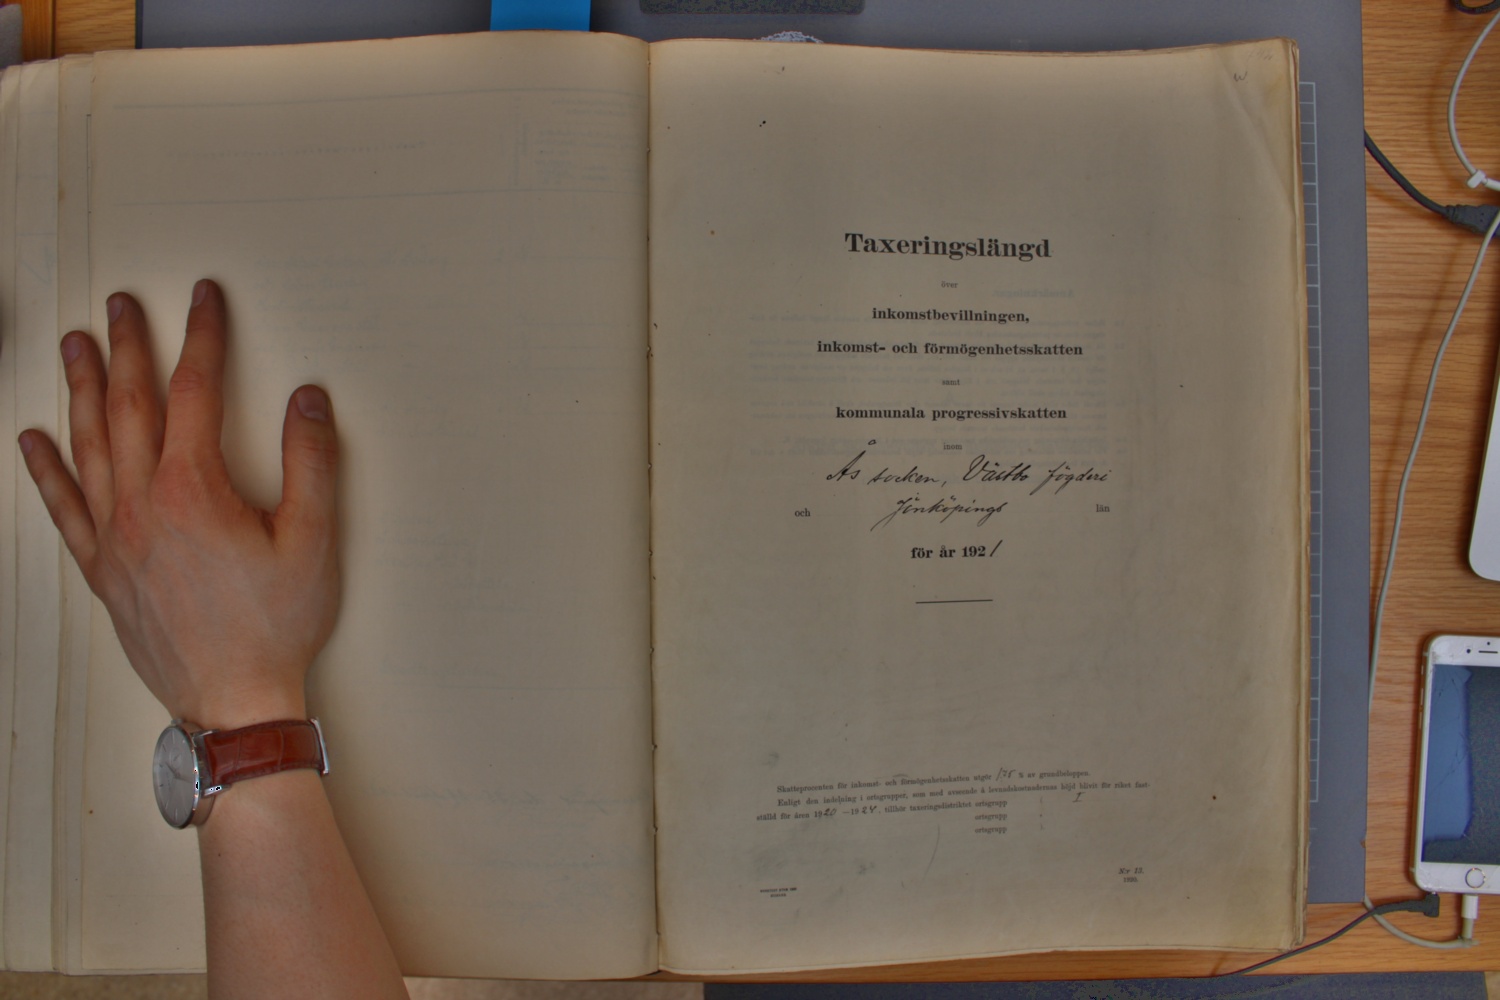 Taxeringslängd
över
inkomstbevillningen,
inkomst- och förmögenhetsskatten
samt
kommunala progressivskatten
inom
Ås socken, Västbo fögderi
och Jönköpings län
för år 1921
Skatteprocenten för inkomst- och förmögenhetsskatten utgör 175 % av grundbeloppen.
Enligt den indelning i ortsgrupper, som med avseende å levnadskostnadernas höjd blivit för riket fast-
ställd för åren 1920—1924, tillhör taxeringsdistriktet ortsgrupp I
ortsgrupp
ortsgrupp
N:r 13.
1920.